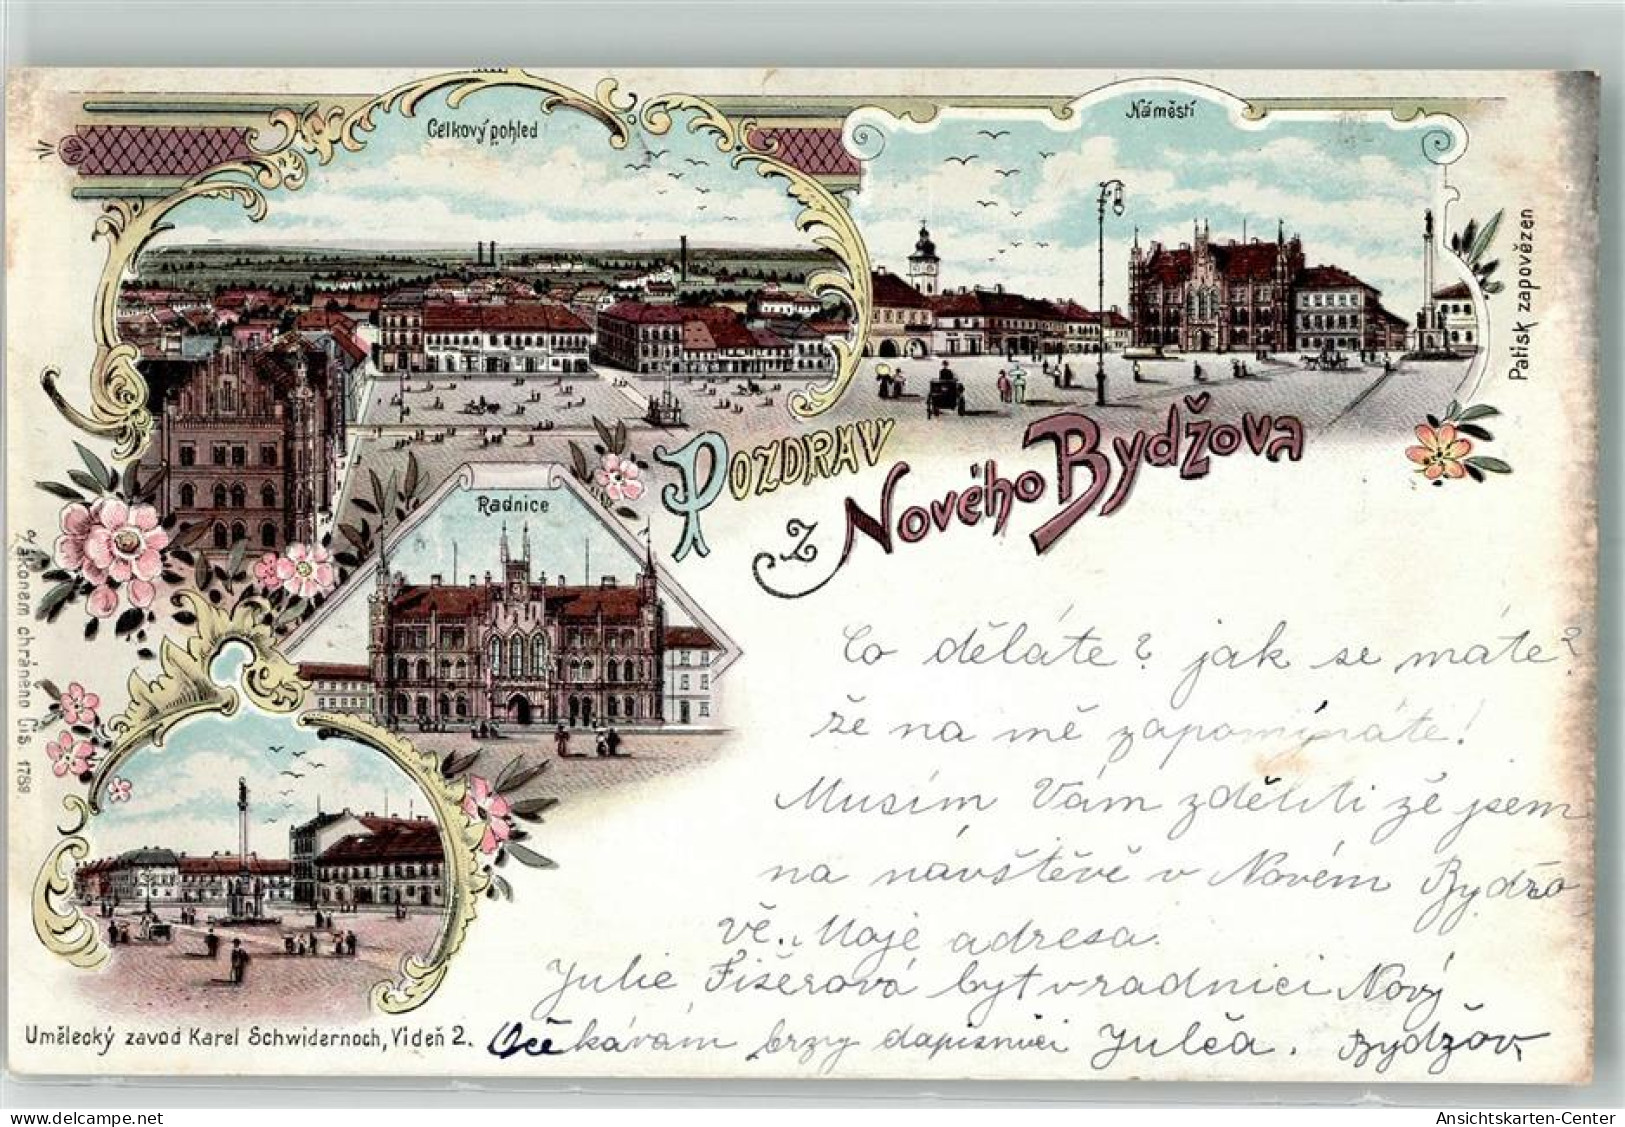 Celkový pohled
Náměstí
Patisk zapovězen
Pozdrav
z Nového Bydžova
Radnice
Zákonem chráněno Čís. 1789.
Co děláte? jak se máte?
že na mě zapomínáte!
Musím Vám zděliti žě jsem
na návštěvě v Novém Bydžo
vě. Moje adresa.
Julie Fišerová byt v radnici Nový
Očekávám brzy dapisnici Julča. Bydžov.
Umělecký zavod Karel Schwidernoch, Videň 2.
www.delcampe.net
Ansichtskarten-Center